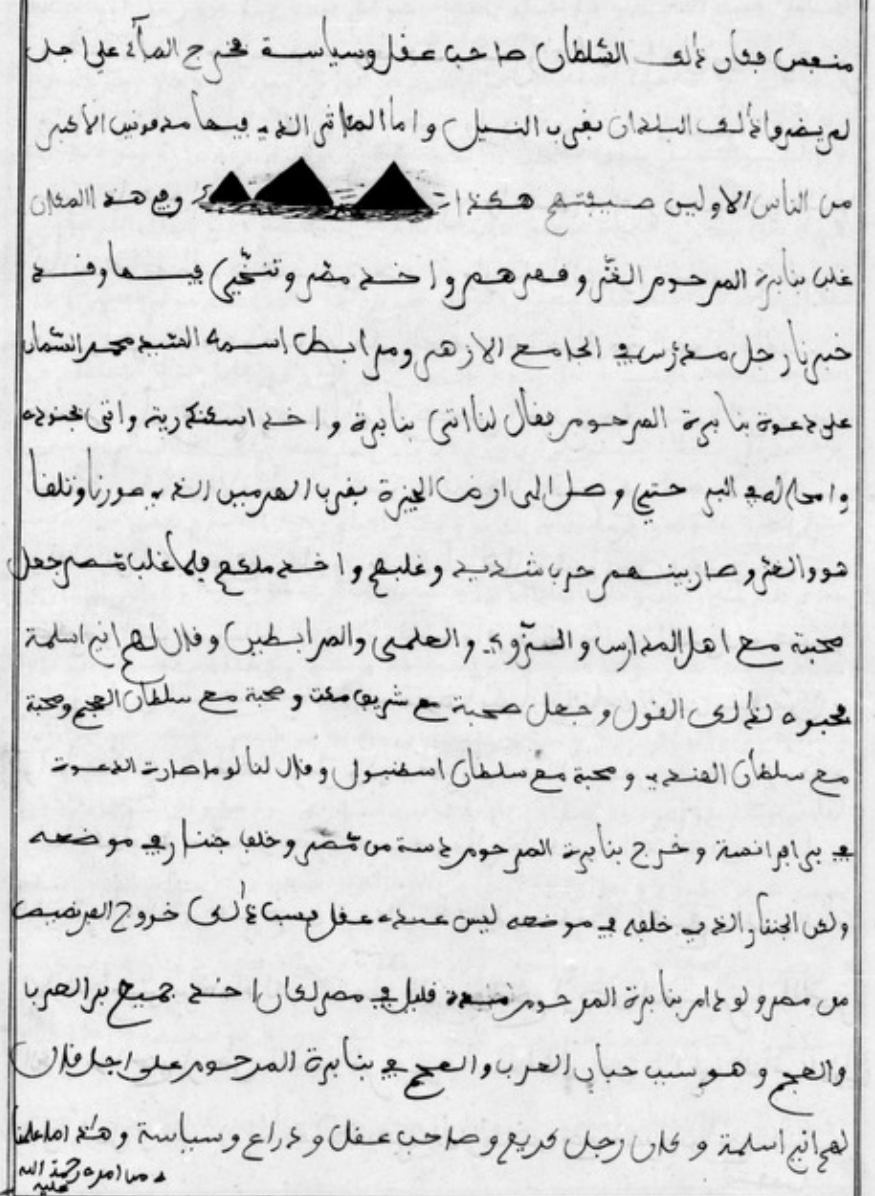 منهم فكان ذلك السلطان صاحب عفل وسياسة مخرج الماء على اجل
لم يضروا ذلك البلدان بفرب النيل واما المفابر الذي فيها مدفونين الاكبر
من الناس الاولين صيفتهم هكذا وفي هذا المكان
غلب بنابرة المرحوم الغز وفهرهم واخذ مصر وتنحى فيها وفد
خبرنا رجل مدرس في الجامع الازهر ومرابط اسمه السيد محمد السمان
على دعوة بنابرة المرحوم ففال لنا اتى بنابرة واخذ اسكندرية واتى بجنوده
وامحاله في البر حتى وصل الى ارض الجيزة بفرب الهرمين الذي صورنا وتلفا
هو والغز وصار بينهم حرب شديد وغلبهم واخذ ملكهم فلما غلب مصر جعل
محبة مع اهل المدارس والسزوي والعلمى والمرابطين وفال لهم اني اسلمة
فحبوه لذلك الفول وجعل صحبة مع شريف مكت وصحبة مع سلطان العجم ومحبة
مع سلطان الهندي ومحبة مع سلطان اسطنبول وفال لنا لو ما صارت الدعوة
في بر افرانصة وخرج بنابرة المرحوم دسة من مصر وخلف جنار في موضعه
ولكن الجننار الذي خلفه في موضعه ليس عنده عفل فبسبب ذلك خروج الفرنصيص
من مصر ولو دام بنابرة المرحوم فليل في مصر لكان اخذ جميع بر العرب
والعجم وهو سبب حبان العرب والعجم في بنابرة المرحوم على اجل فال
لهم اني اسلمة وكان رجل كريم وصاحب عفل وذراع وسياسة وهذا ما علمنا
من امره رحمة الله عليه